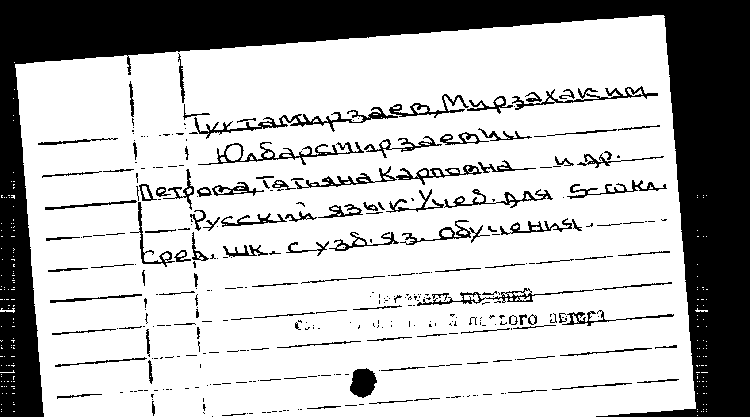 Туктамирзаев, Мирзахаким
Юлбарсмирзаевич.
Петрова, Татьяна Карповна и др.
Русский язык: Учеб. для 5-го кл.
сред. шк. с узб. яз. обучения.
изданий
первого автора